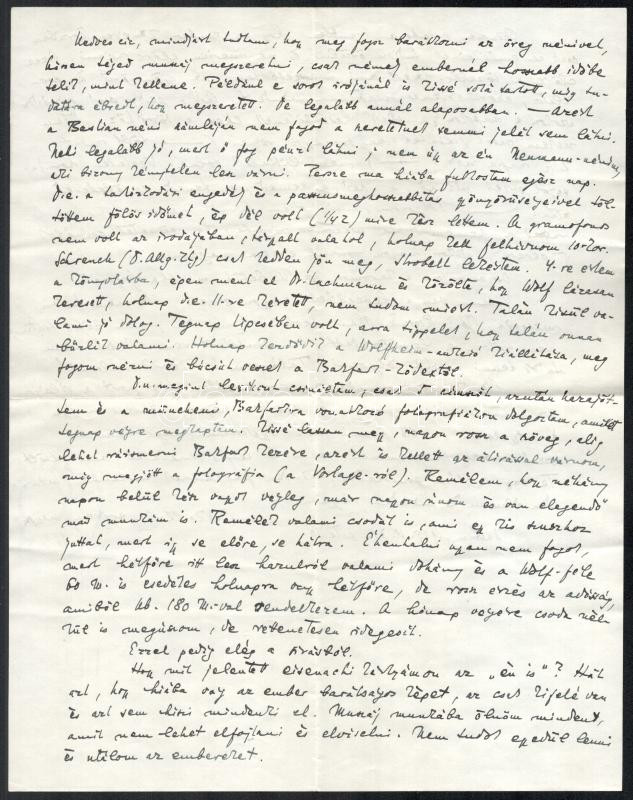 Kedves ciz, mindjárt tudtam, hogy meg fogsz barátkozni az öreg nénivel,
hiszen téged muszáj megszeretni, csak német embernél hosszabb időbe
telik, mint kellene. Például e sorok írójánál is kissé soká tartott, míg tu-
datára ébredt, hogy megszeretett. De legalább annál alaposabban. — Azért
a Bastian néni számláján nem fogod a szeretetnek semmi jelét sem látni.
Neki legalább jó, mert ő fog pénzt látni; nem úgy az én Neumann-néném,
aki bizony kénytelen lesz várni. Persze ma hiába futkostam egész nap.
D.e. a tartózkodási engedély és a passusmeghosszabbítás gyönyörűségeivel töl-
töttem fölös időmet, ép dél volt (1/42) mire kész lettem. A gramofonos
nem volt az irodájában, holnap kell felhívnom 10-kor.
Schrenck (D. Allg. Ztg) csak kedden jön meg, Strobelt lekéstem. 4-re értem
a könyvtárba, épen ment el Dr. Lachmann és közölte, hogy Wolf lázasan
keresett, holnap d.e. 11-re kéretett, nem tudom miért. Talán készül va-
lami jó dolog. Tegnap Lipcsében volt, arra tippelek, hogy talán onnan
bőrlit valami. Holnap kezdődik a Wolffheim-aukció kiállítása, meg
fogom nézni és búcsút veszek a Bakfark-kódextől.
D.u. megint lexikont csináltam; csak 5 címszót, azután hazajöt-
tem és a müncheni, Bakfarkra vonatkozó fotografiákon dolgoztam, amiket
tegnap végre megkaptam. Kissé lassan megy, nagyon rossz a szöveg, alig
lehet ráismerni Bakfark kezére, azért is kellett az átírással várnom,
míg megjött a fotográfia (a Vorlage-ról). Remélem, hogy néhány
napon belül kész vagyok végleg, már nagyon únom és van elegendő
más munkám is. Remélek valami csodát is, ami egy kis pénzhez
juttat, mert így se előre, se hátra. Éhenhalni ugyan nem fogok,
mert hétfőre itt lesz hazulról valami dohány és a Wolf-féle
60 M. is esedékes holnapra vagy hétfőre, de rossz érzés az adósság,
amiből kb. 180 M.-val rendelkezem. A hónap végére csoda nél-
kül is megúszom, de rettenetesen idegesít.
Ezzel pedig elég a sírásból.
Hogy mit jelentett eisenachi kártyámon az „én is"? Hát
azt, hogy hiába vág az ember barátságos képet, az csak kifelé van
és azt sem hiszi mindenki el. Muszáj munkába ölnöm mindent,
amit nem lehet elfojtani és elviselni. Nem tudok egyedül lenni
és utálom az embereket.